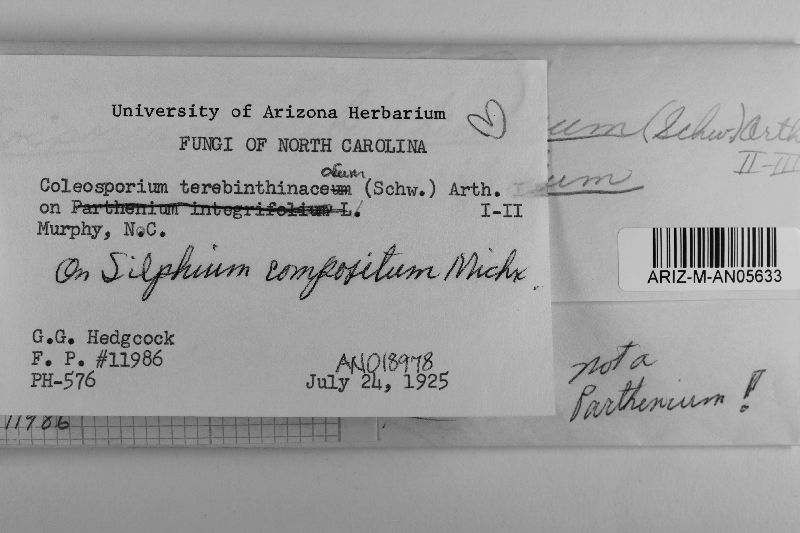 University of Arizona Herbarium
FUNGI OF NORTH CAROLINA
Coleosporium terebinthinaceum (Schw.) Arth.
on Parthenium integrifolium L. I-II
Murphy, N.C.
On Silphium compositum Michx.
G.G. Hedgcock
F. P. #11986
PH-576
AN018978
July 24, 1925
ium (Schw.) Arth
II-III
ium
ARIZ-M-AN05633
not a
Parthenium!
11986